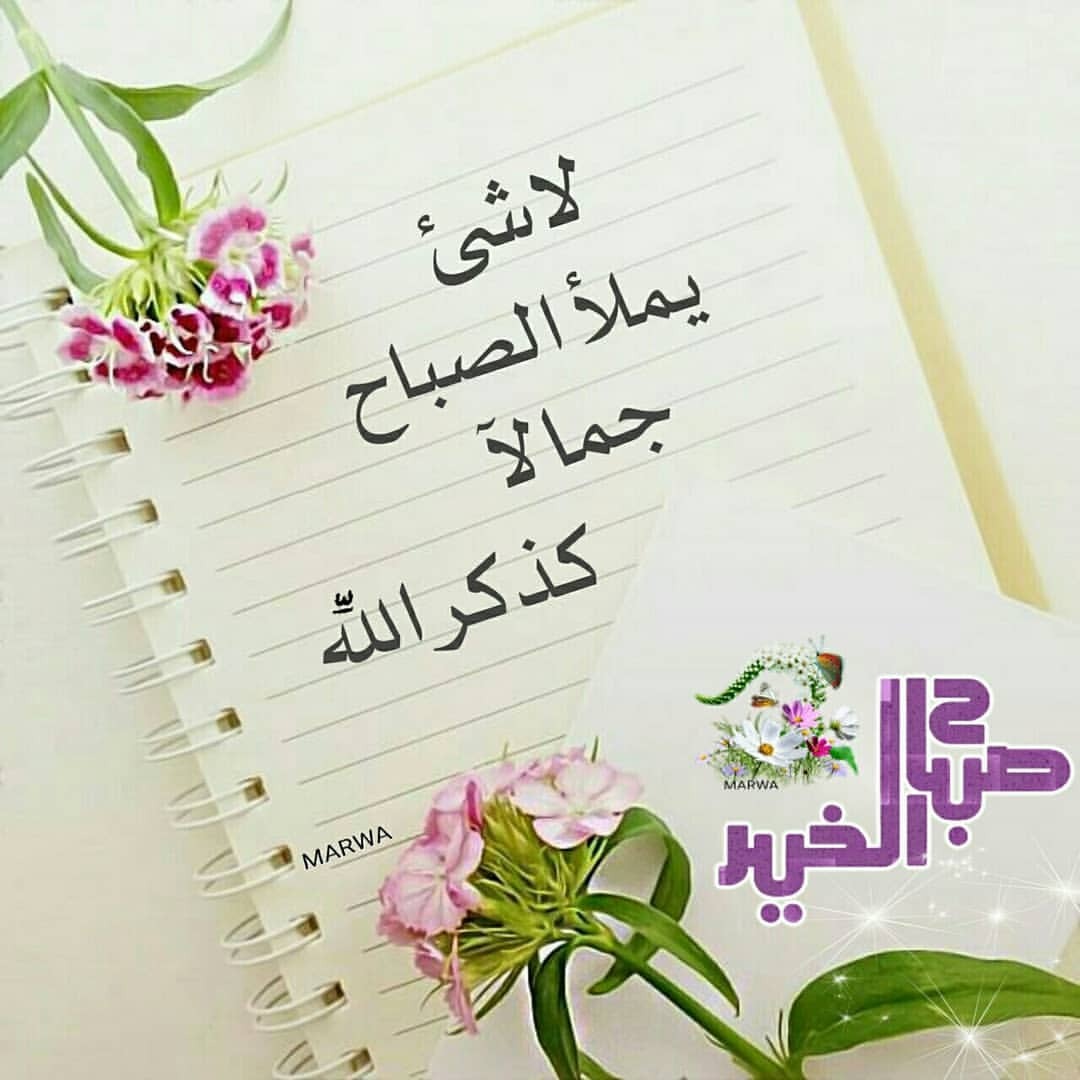 لاشئ
يملأ الصباح
جمالآ
كذكر الله
MARWA
صباح
الخير
MARWA